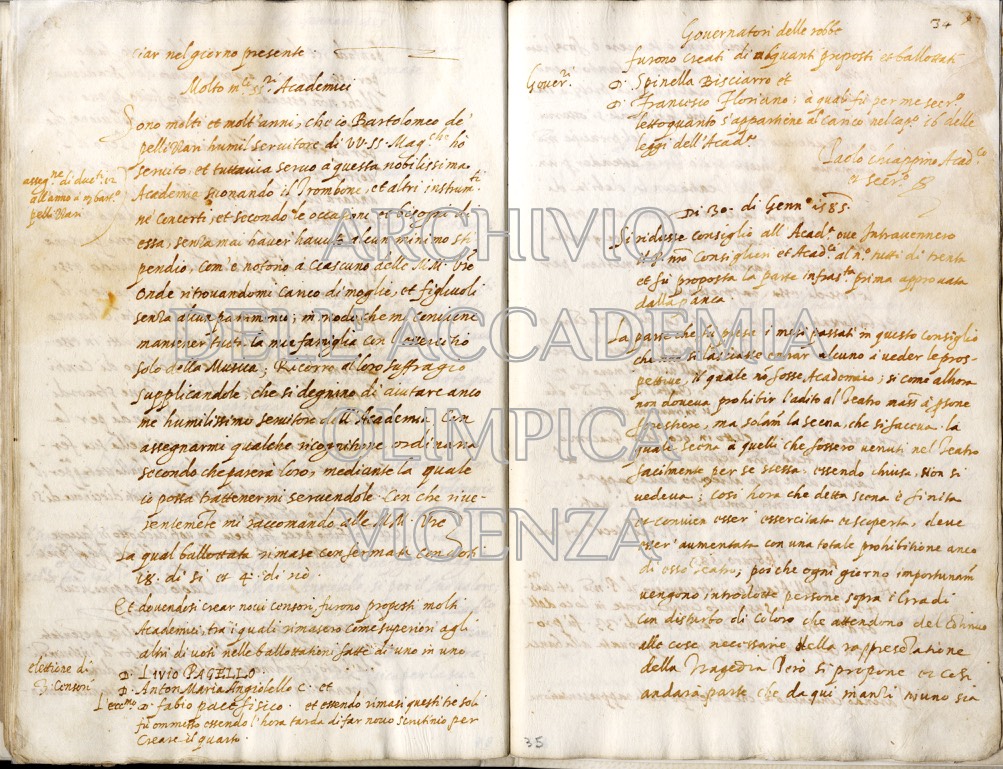 ciar nel giorno presente
Molto m.ci si.ri Academici
Sono molti et molt'anni, che io Bartolomeo de'
pelliZari humil servitore di VV. SS. Mag.che hò
servito, et tuttavia servo à questa nobilissima
Academia, suonando il Trombone, et altri instrum.ti
ne Concerti, et secondo le occasioni et bisogni di
essa, senza mai haver havuto alcun minimo sti
pendio, com'è notorio à Ciascuno delle MM. Vre
Onde ritrovandomi Carico di moglie, et figliuoli
senza alcun patrimonio, in modo che mi conviene
mantener tutta la mia famiglia con l'esercitio
solo della Musica; Ricorro al loro suffragio
supplicandole, che si degnino di aiutare anco
me humilissimo servitore dell'Academia, Con
assegnarmi qualche ricognitione ordinaria
secondo che parerà loro, mediante la quale
io possa trattenermi servendole. Con che rive-
rentemente mi raccomando alle MM. Vre
La qual ballottata rimase confermata con voti
18. di si et 4. di nò.
Et dovendosi crear novi censori, furono proposti molti
Academici, tra i quali rimasero come superiori agli
altri di voti nelle ballottationi fatte di uno in uno
D. LIVIO PAGELLO.
D. Anton Maria Angiolello C. et
L'ecc.mo D. fabio pace fisico. et essendo rimasi questi tre soli
fù ommesso essendo l'hora tarda di far novo scrutinio per
Creare il quarto.
all'anno à m. Bart.o
pelliZari
elettione di
3. Censori
34
Governatori delle robbe
furono Creati di alquanti proposti et ballottati
Gover.ri
D. Spinella Bisciarro et
D. Francesco Floriano; à quali fù per me secr.o
letto quanto s'appartiene al carico nel cap.o 16 delle
leggi dell'Acad.a
Paolo Chiappino Acad.co
et secr.o
Di 30. di Genn.o 1585
Si ridusse consiglio all'Acad.a ove Intravennero
Consiglieri et Acad.ci al n.o tutti di trenta
et fù proposta la parte infras.ta prima approvata
dalla panca.
La parte che fù presa i mesi passati in questo consiglio
che non si lasciasse entrar alcuno à veder le pros-
pettive, il quale nò fosse Academico; si come alhora
non doveva prohibir l'adito al Teatro mass.e à psone
forestiere, ma solam.te la scena, che si faceva. la
quale scena à quelli che fossero venuti nel Teatro
facilmente per se stessa, essendo chiusa, non si
vedeva; Così hora che detta scena è finita
et convien esser essercitata et scoperta, deve
esser aumentata con una totale prohibitione anco
di esso Teatro; poi che ogni giorno importunam.te
vengono introdotte persone sopra i Gradi
con disturbo di Coloro che attendono del Continuo
alle cose necessarie della rappresentatione
della Tragedia. Però si propone et così
anderà parte che da qui inanzi niuno sia
35
ARCHIVIO
DELL'ACCADEMIA
OLIMPICA
VICENZA